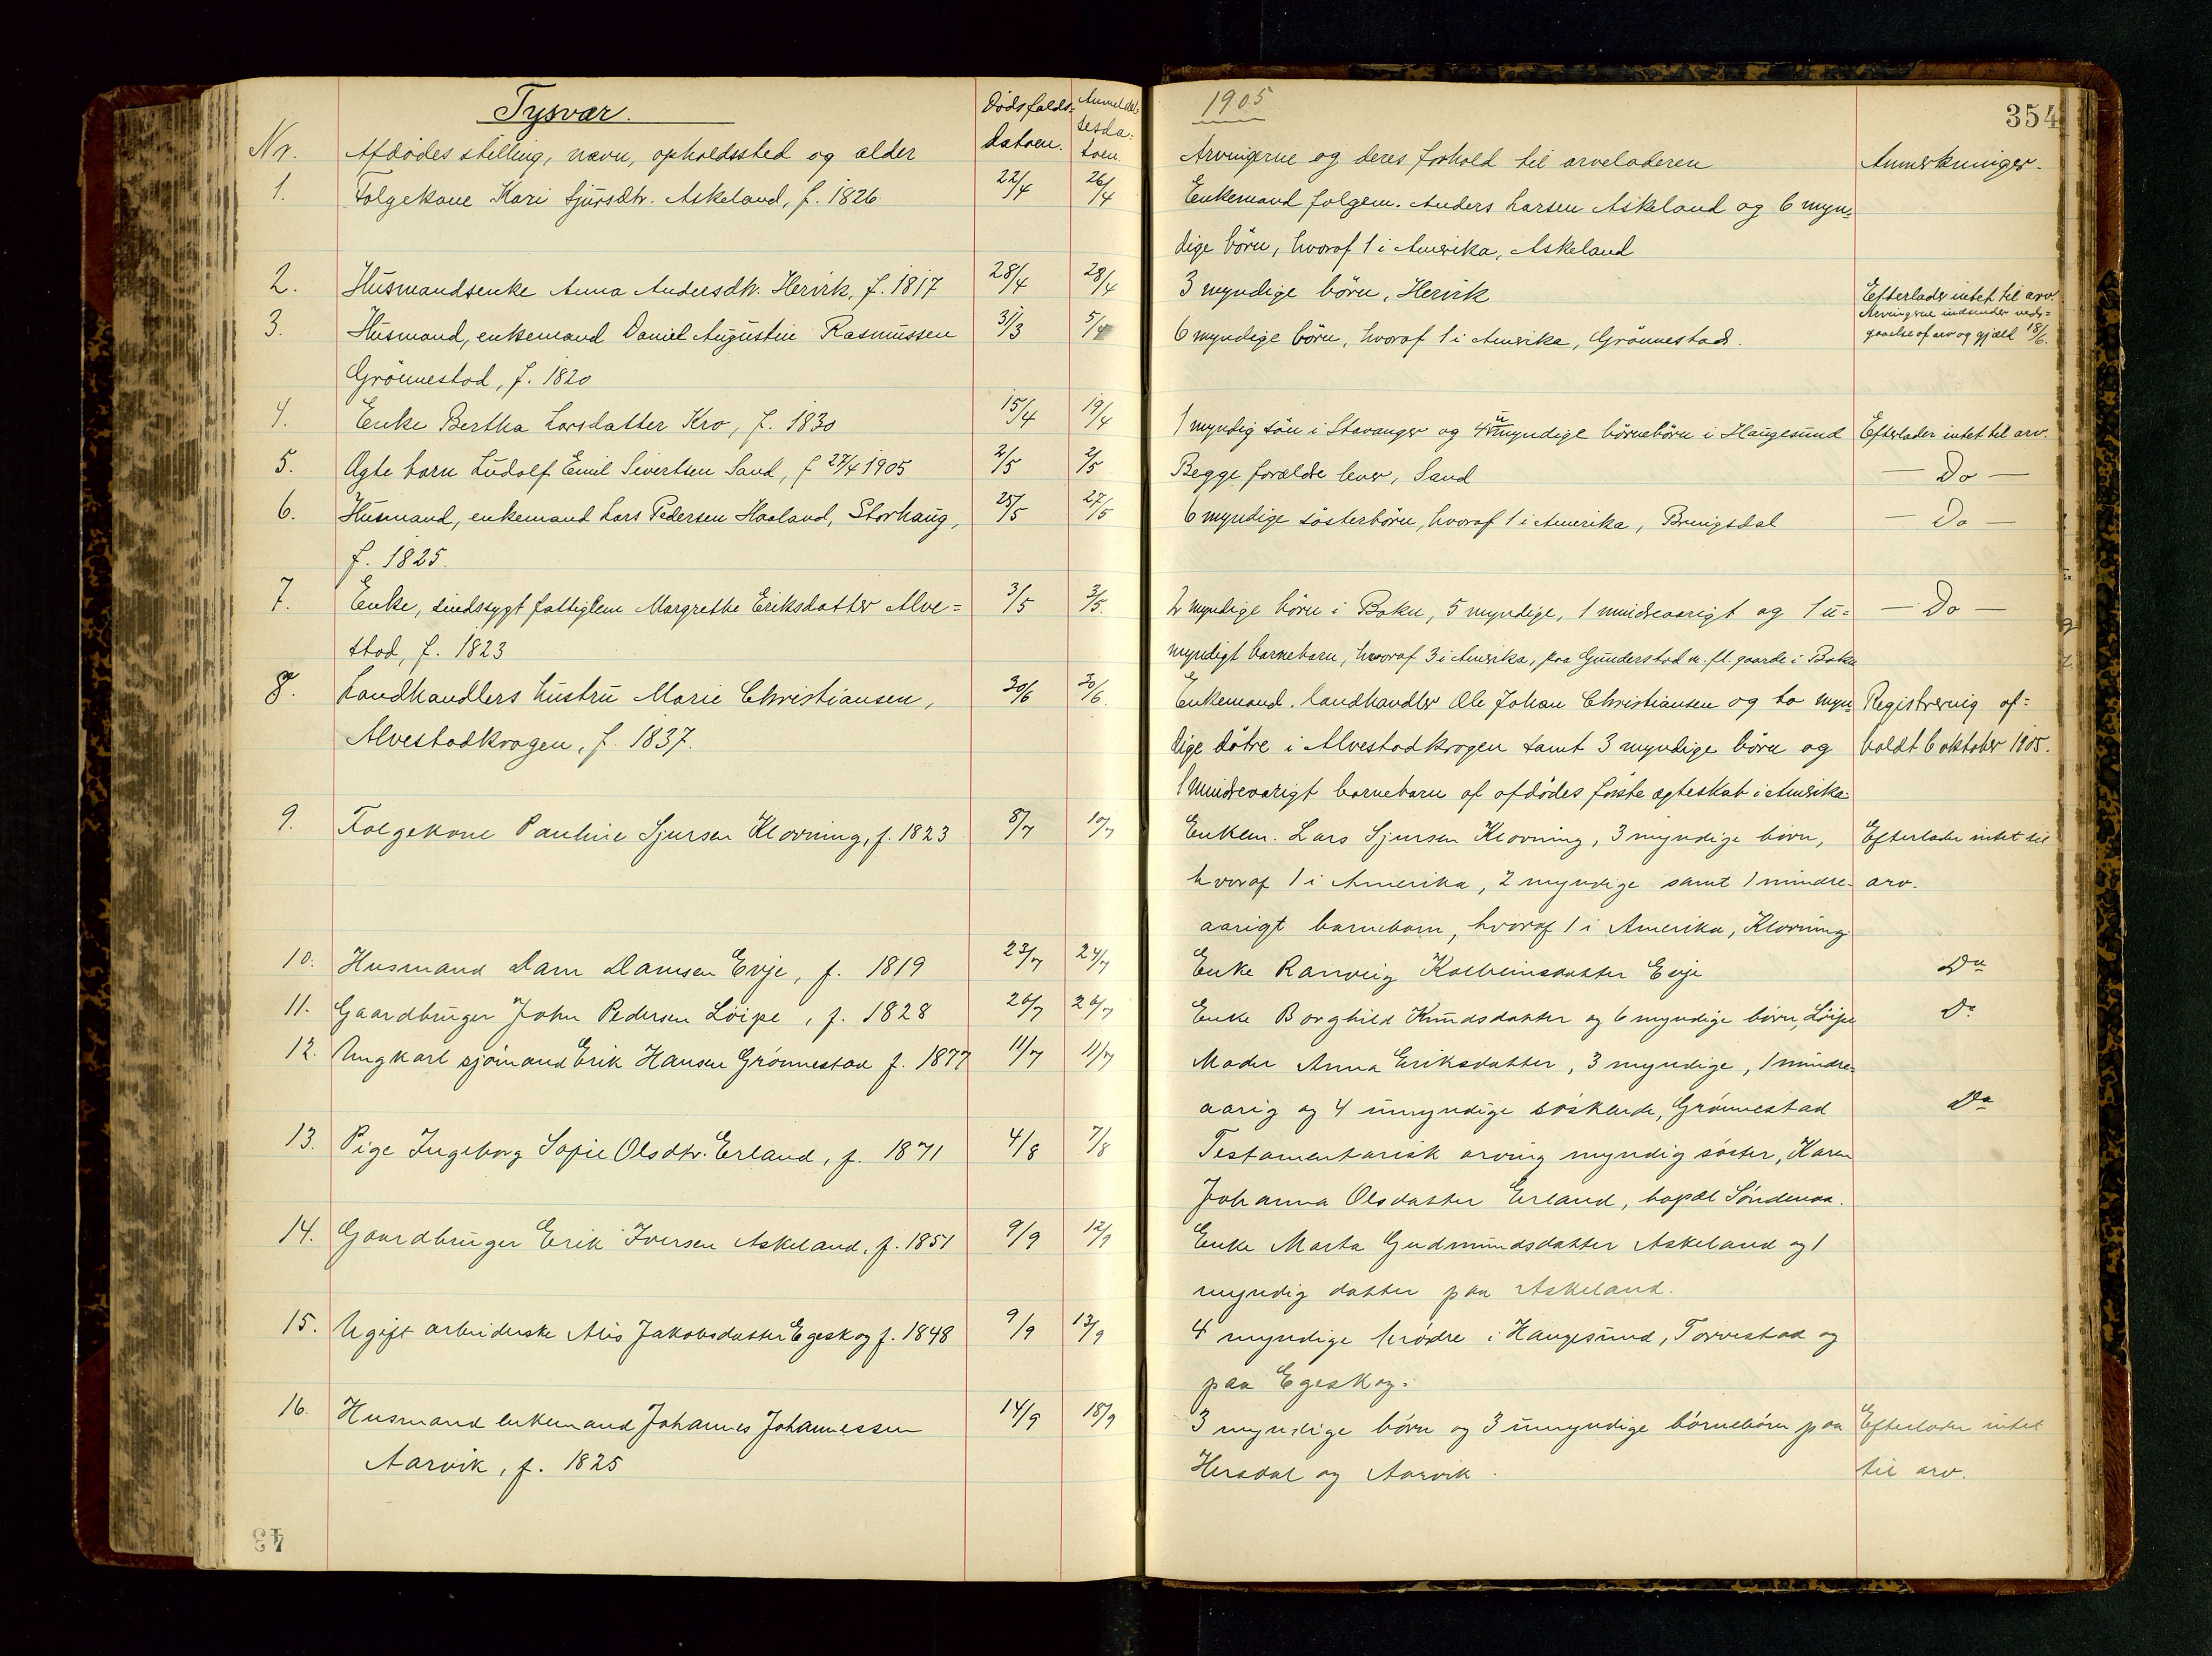 Tysvær.
Dødsfalds-
datoen.
Anmeldel-
sesda-
toen.
1905
354
Nr. Afdødes stilling, navn, opholdssted og alder
Arvingerne og deres forhold til arveladeren
Anmerkninger.
1. Folgekone Kari Sjursdtr. Askeland, f. 1826 22/4 26/4 Enkemand folgem. Anders Larsen Askeland og 6 myn=
dige børn, hvoraf 1 i Amerika, Askeland
2. Husmandsenke Anna Andersdtr. Hervik, f. 1817 28/4 28/4 3 myndige børn, Hervik
Efterlader intet til arv.
3. Husmand, enkemand Daniel Augustin Rasmussen 31/3 5/4 6 myndige børn, hvoraf 1 i Amerika, Grønnestad.
Arvingerne indsender veds=
gaaelse af arv og gjæld 18/6.
Grønnestad, f. 1820
4. Enke Bertha Larsdatter Kro, f. 1830 15/4 19/4 1 myndig søn i Stavanger og 4 umyndige børnebørn i Haugesund Efterlader intet til arv.
5. Ægte barn Ludolf Emil Sivertsen Sand, f 27/4 1905 2/5 2/5 Begge forældre lever, Sand — Do —
6. Husmand, enkemand Lars Pedersen Haaland, Storhaug, 25/5 27/5 6 myndige søsterbørn, hvoraf 1 i Amerika, Bringsdal — Do —
f. 1825.
7. Enke, sindssygt fattiglem Margrethe Eriksdatter Alve= 3/5 3/5. 2 myndige børn i Bokn, 5 myndige, 1 mindreaarigt og 1 u= — Do —
stad, f. 1823
myndigt barnebarn, hvoraf 3 i Amerika, paa Gunderstad m. fl. gaarde i Bokn
8. Landhandlers hustru Marie Christiansen, 30/6 30/6. Enkemand. landhandler Ole Johan Christiansen og to myn= Registrering af=
Alvestadkrogen, f. 1837.
dige døtre i Alvestadkrogen samt 3 myndige børn og holdt 6 oktober 1905.
1 mindreaarigt barnebarn af afdødes første ægteskab i Amerika.
9. Folgekone Pauline Sjursen Klovning, f. 1823 8/7 10/7 Enkem. Lars Sjursen Klovning, 3 myndige børn, Efterlader intet til
hvoraf 1 i Amerika, 2 myndige samt 1 mindre- arv.
aarigt barnebarn, hvoraf 1 i Amerika, Klovning.
10. Husmand Dam Damsen Evje, f. 1819 23/7 24/7 Enke Ranveig Kolbeinsdatter Evje Do
11. Gaardbruger John Pedersen Løipe, f. 1828 26/7 26/7 Enke Borghild Knudsdatter og 6 myndige børn, Løipe Do
12. Ungkarl sjømand Erik Hansen Grønnestad f. 1877 11/7 11/7 Moder Anna Eriksdatter, 3 myndige, 1 mindre=
aarig og 4 umyndige søskende, Grønnestad Do
13. Pige Ingeborg Sofie Olsdtr. Erland, f. 1871 4/8 7/8 Testamentarisk arving myndig søster, Karen
Johanna Olsdatter Erland, bopæl Søndenaa.
14. Gaardbruger Erik Iversen Askeland, f. 1851 9/9 12/9 Enke Marta Gudmundsdatter Askeland og 1
myndig datter paa Askeland.
15. Ugift arbeiderske Alis Jakobsdatter Egeskog f. 1848 9/9 13/9 4 myndige brødre i Haugesund, Torvestad og
paa Egeskog.
16. Husmand enkemand Johannes Johannessen 14/9 18/9 3 myndige børn og 3 umyndige børnebørn paa Efterlader intet
Aarvik, f. 1825
Hersdal og Aarvik. til arv.